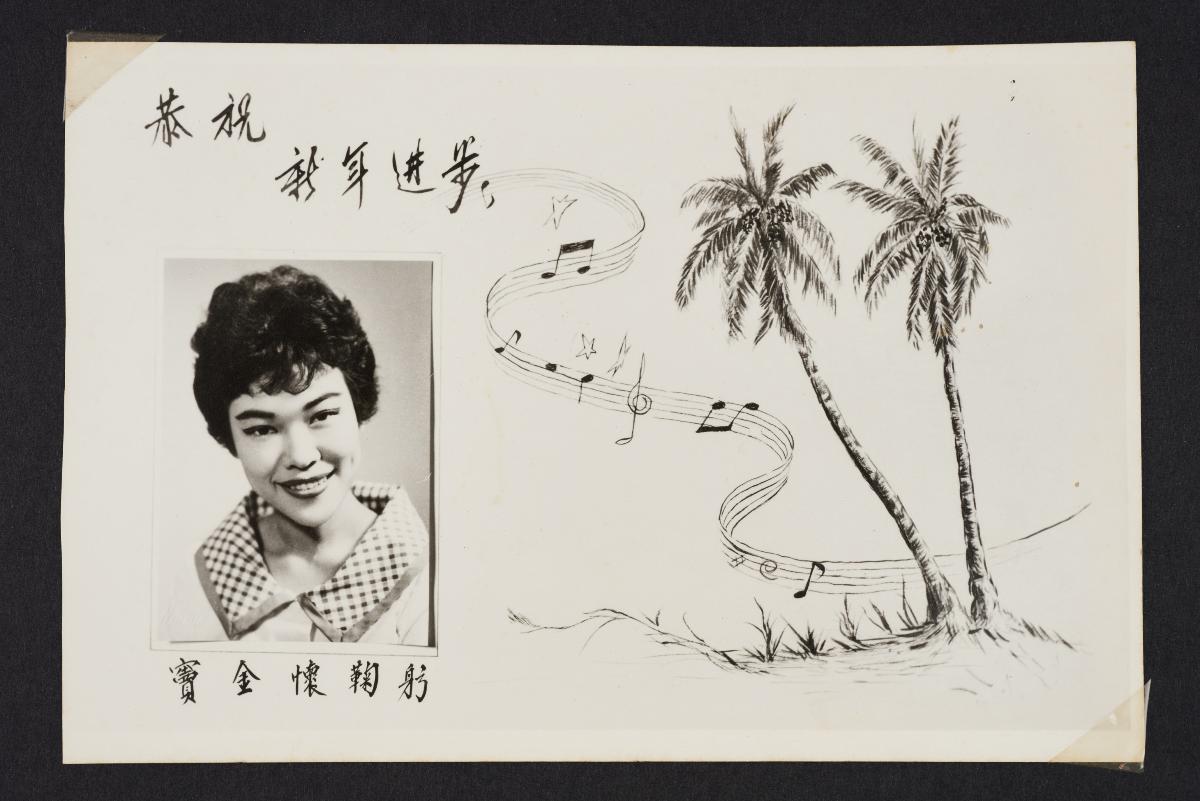 恭祝
新年进步
竇金懷鞠躬